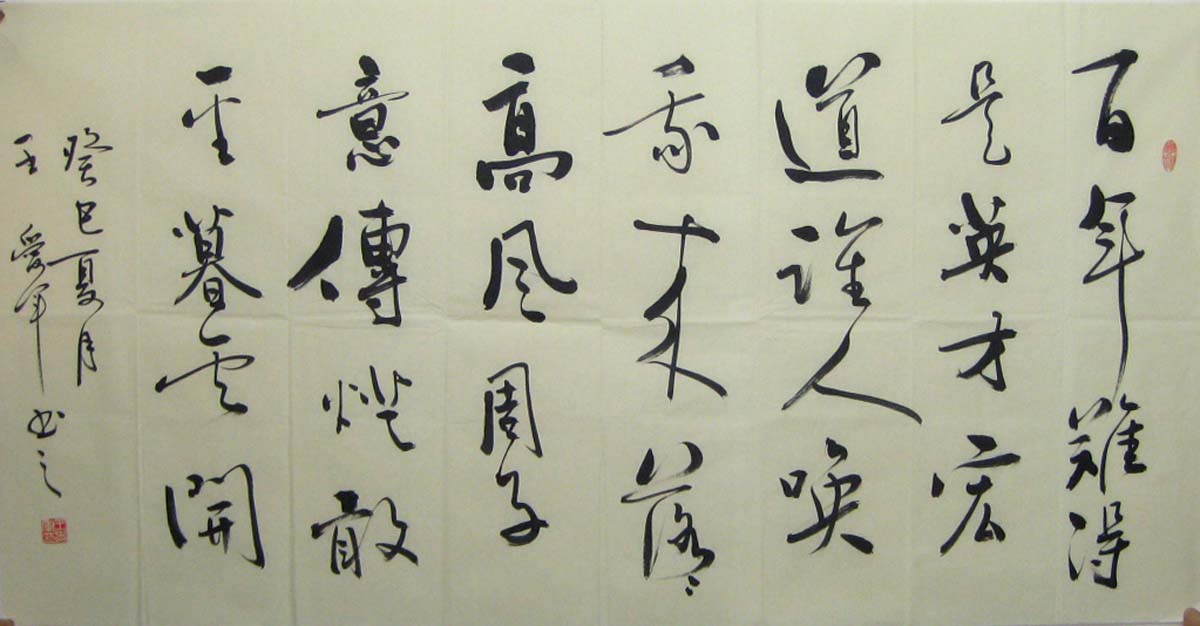 百年難得
是英才宏
道誰人喚
我來落々
高風周子
意傳燈敢
望暮雲開
癸巳夏月
王愛軍书之